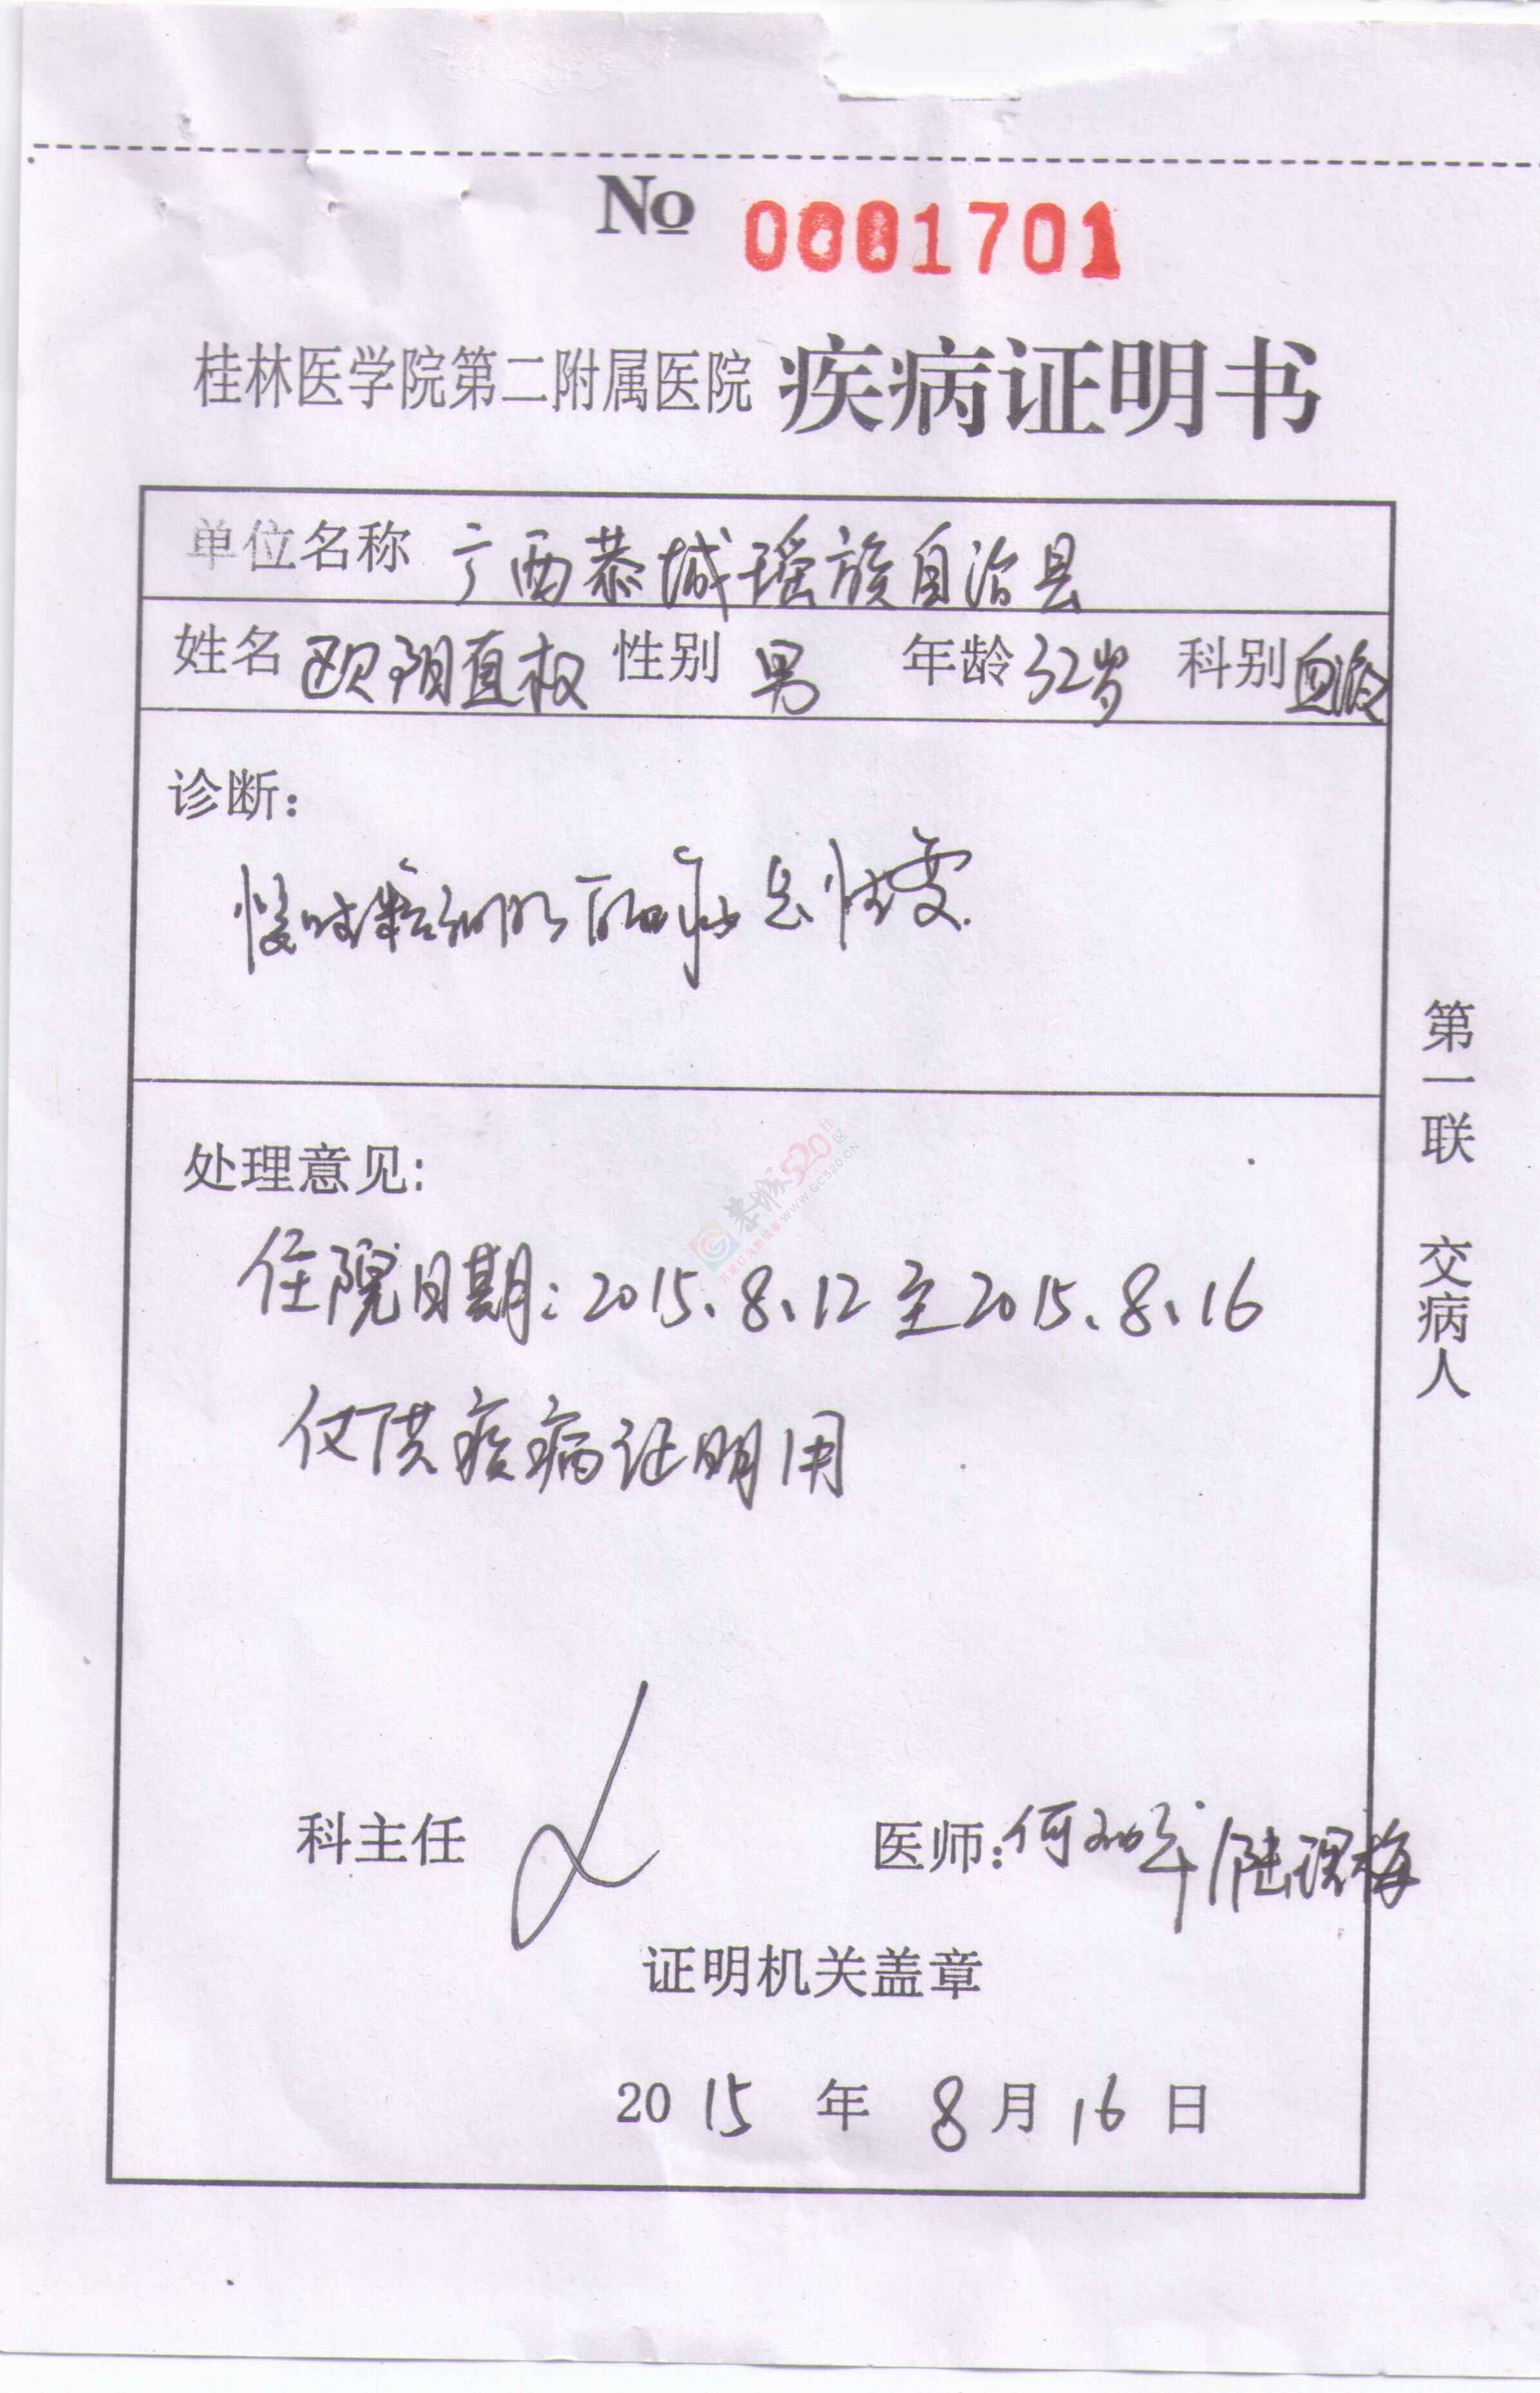 No 0001701
桂林医学院第二附属医院 疾病证明书
单位名称 广西恭城瑶族自治县
姓名 欧阳直权 性别 男 年龄 32岁 科别 血液
诊断：
慢性粒细胞白血病急性变.
处理意见：
住院日期：2015.8.12至2015.8.16
仅供疾病证明用
科主任
医师：何 陆 梅
证明机关盖章
2015 年 8 月 16 日
第一联 交病人
恭城520社区
WWW.GC520.CN